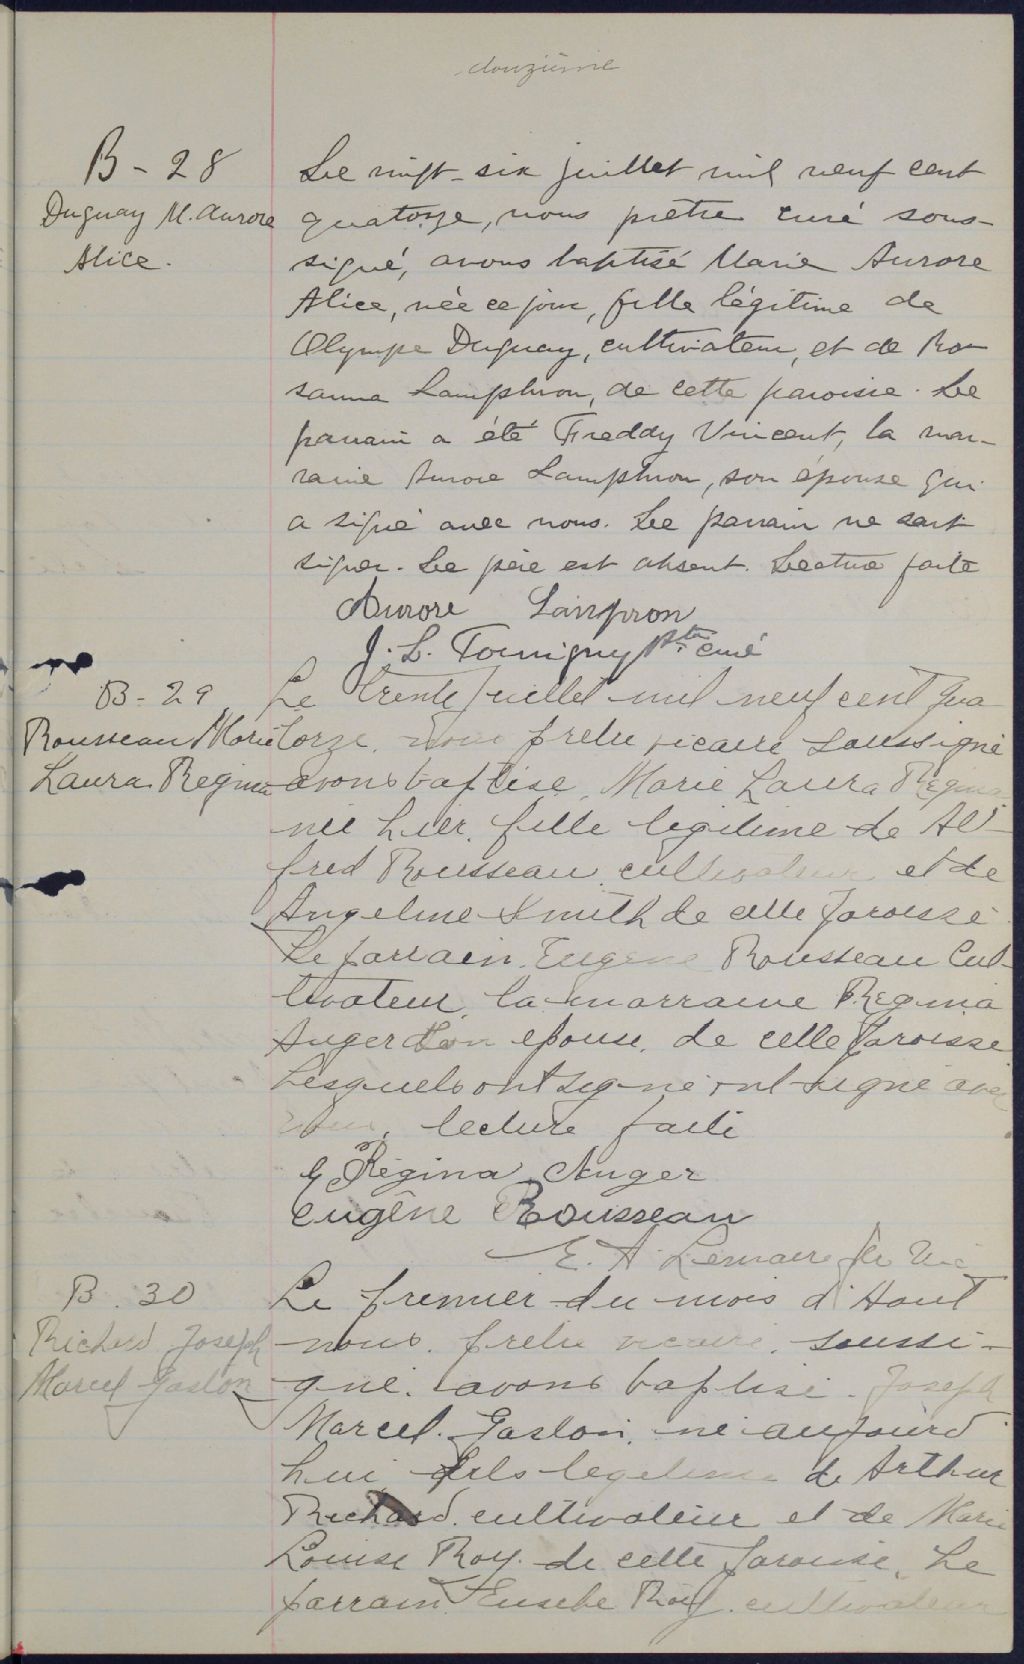 douzième
B - 28
Duguay M. Aurore
Alice.
Le vingt-six juillet mil neuf cent
quatorze, nous prêtre curé sous-
signé, avons baptisé Marie Aurore
Alice, née ce jour, fille légitime de
Olympe Duguay, cultivateur, et de Ro-
sanna Lamphron, de cette paroisse. Le
parrain a été Freddy Vincent, la mar-
raine Aurore Lamphron, son épouse qui
a signé avec nous. Le parrain ne sait
signer. Le père est absent. Lecture faite
Aurore Lampron
J. L. Tourigny ptre curé
B - 29
Rousseau Marie
Laura Regina
Le trente juillet mil neuf cent qua
torze, nous prêtre vicaire soussigné
avons baptise, Marie Laura Regina
née hier, fille legitime de Al-
fred Rousseau cultivateur et de
Angeline Smith de cette paroisse
Le parrain Eugene Rousseau Cul-
tivateur, la marraine Regina
Auger son epouse, de cette paroisse
Lesquels ont signe ont signé avec
nous, lecture faite
Régina Auger
Eugêne Rousseau
E. A. Lemaire ptr Vic
B. 30
Richard Joseph
Marcel Gaston
Le premier du mois d'Aout
nous, prêtre vicaire, soussi-
gné, avons baptise. Joseph
Marcel. Gaston, né aujourd
hui fils legitime de Arthur
Richard, cultivateur et de Marie
Louise Roy. de cette paroisse, Le
parrain Eusebe Roy. cultivateur